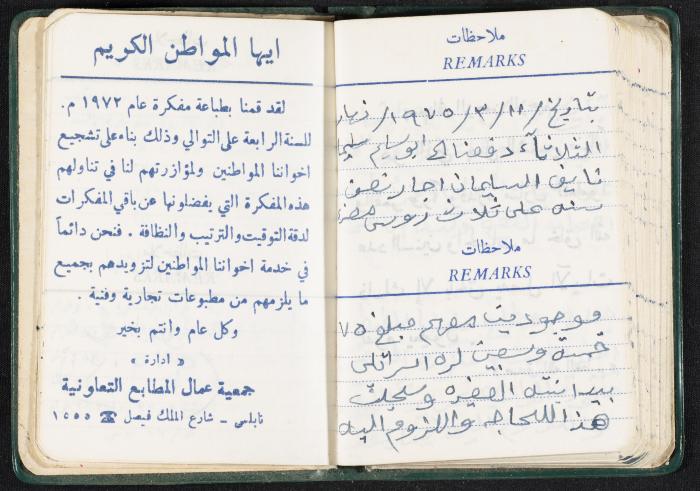 ايها المواطن الكريم
لقد قمنا بطباعة مفكرة عام ١٩٧٢ م.
للسنة الرابعة على التوالي وذلك بناء على تشجيع
اخواننا المواطنين ولمؤازرتهم لنا في تناولهم
هذه المفكرة التي يفضلونها عن باقي المفكرات
لدقة التوقيت والترتيب والنظافة . فنحن دائماً
في خدمة اخواننا المواطنين لتزويدهم بجميع
ما يلزمهم من مطبوعات تجارية وفنية .
وكل عام وانتم بخير
« ادارة »
جمعية عمال المطابع التعاونية
نابلس - شارع الملك فيصل ☎ ١٤٥٥
ملاحظات
REMARKS
بتاريخ /١١/ ٣/ ١٩٧٥/ نهار
الثلاثاء دفعنا الى ابو سليم
نايف السليمان اجار نصف
سنه على ثلاث
ملاحظات
REMARKS
موجودين معهم مبلغ ٧٥
خمسة وسبعين لره
بيد ابنته وسجلت
هذا للحاجه واللزوم اليه